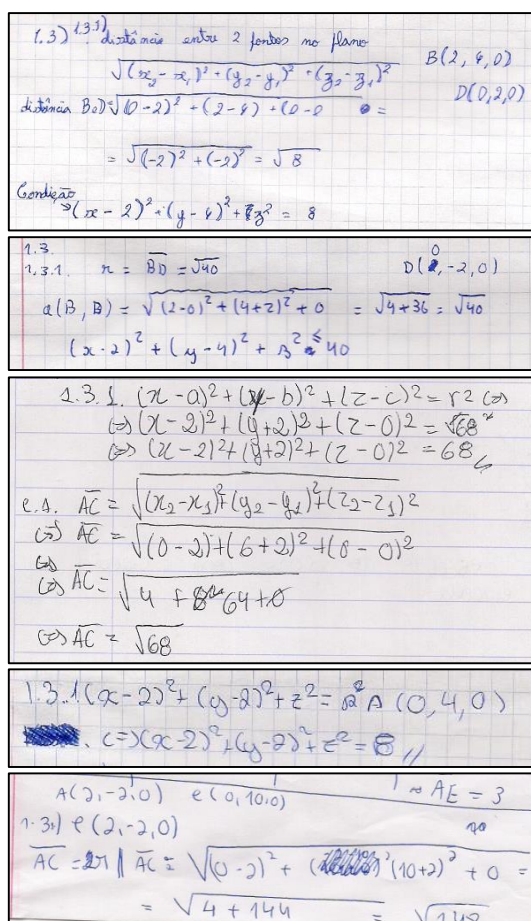 1.3) 1.3.1) distância entre 2 pontos no plano
√(x₂-x₁)² + (y₂-y₁)² + (z₂-z₁)² B(2, 4, 0)
distância BD=√(0-2)² + (2-4) + (0-0 = D(0,2,0)
= √(-2)² + (-2)² = √8
Condição
→ (x-2)² + (y-4)² + z² = 8
1.3.
1.3.1. r = BD = √40 D(0, -2, 0)
d(B, D) = √(2-0)² + (4+2)² + 0 = √4+36 = √40
(x-2)² + (y-4)² + z² ≤ 40
1.3.1. (x-a)² + (y-b)² + (z-c)² = r² (=)
(=) (x-2)² + (y+2)² + (z-0)² = √68²
(=) (x-2)² + (y+2)² + (z-0)² = 68
c.a. AC = √(x₂-x₁)² + (y₂-y₁)² + (z₂-z₁)²
(=) AC = √(0-2) + (6+2)² + (0-0)²
(=)
(=) AC = √4 + 64 + 0
(=) AC = √68
1.3.1 (x-2)² + (y-2)² + z² = R² A (0, 4, 0)
(=) (x-2)² + (y-2)² + z² = 8 //
A(2,-2,0) C(0, 10, 0) AE = 3
1.31) C(2,-2,0)
AC = 2r // AC = √(0-2)² + (10+2)² + 0 =
= √4 + 144 = √148